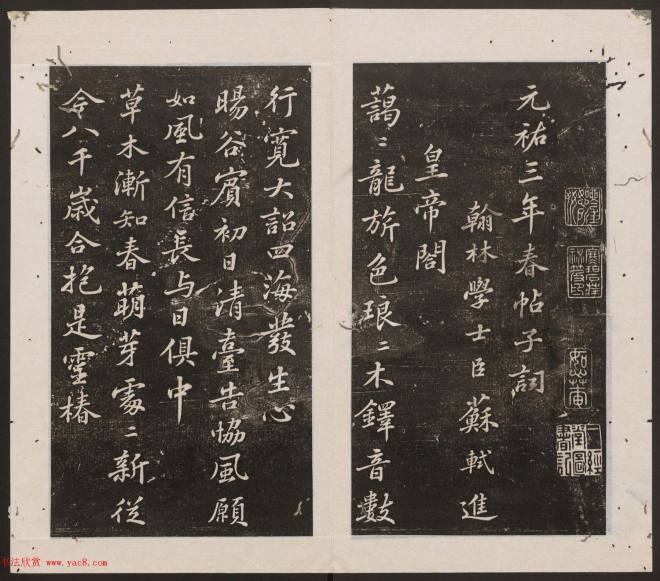 元祐三年春帖子詞
翰林學士臣蘇軾進
皇帝閤
藹〻龍旂色琅〻木鐸音數
行寬大詔四海發生心
暘谷賓初日清臺告協風願
如風有信長与日俱中
草木漸知春萌芽處〻新從
令八千歲合抱是靈椿
书法欣赏 www.yac8.com